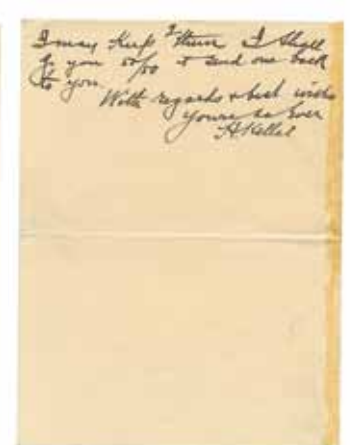 I may Keep them I shall
you 50/50 & send one back
to you
With regards & best wishes
Yours as Ever
HKellar